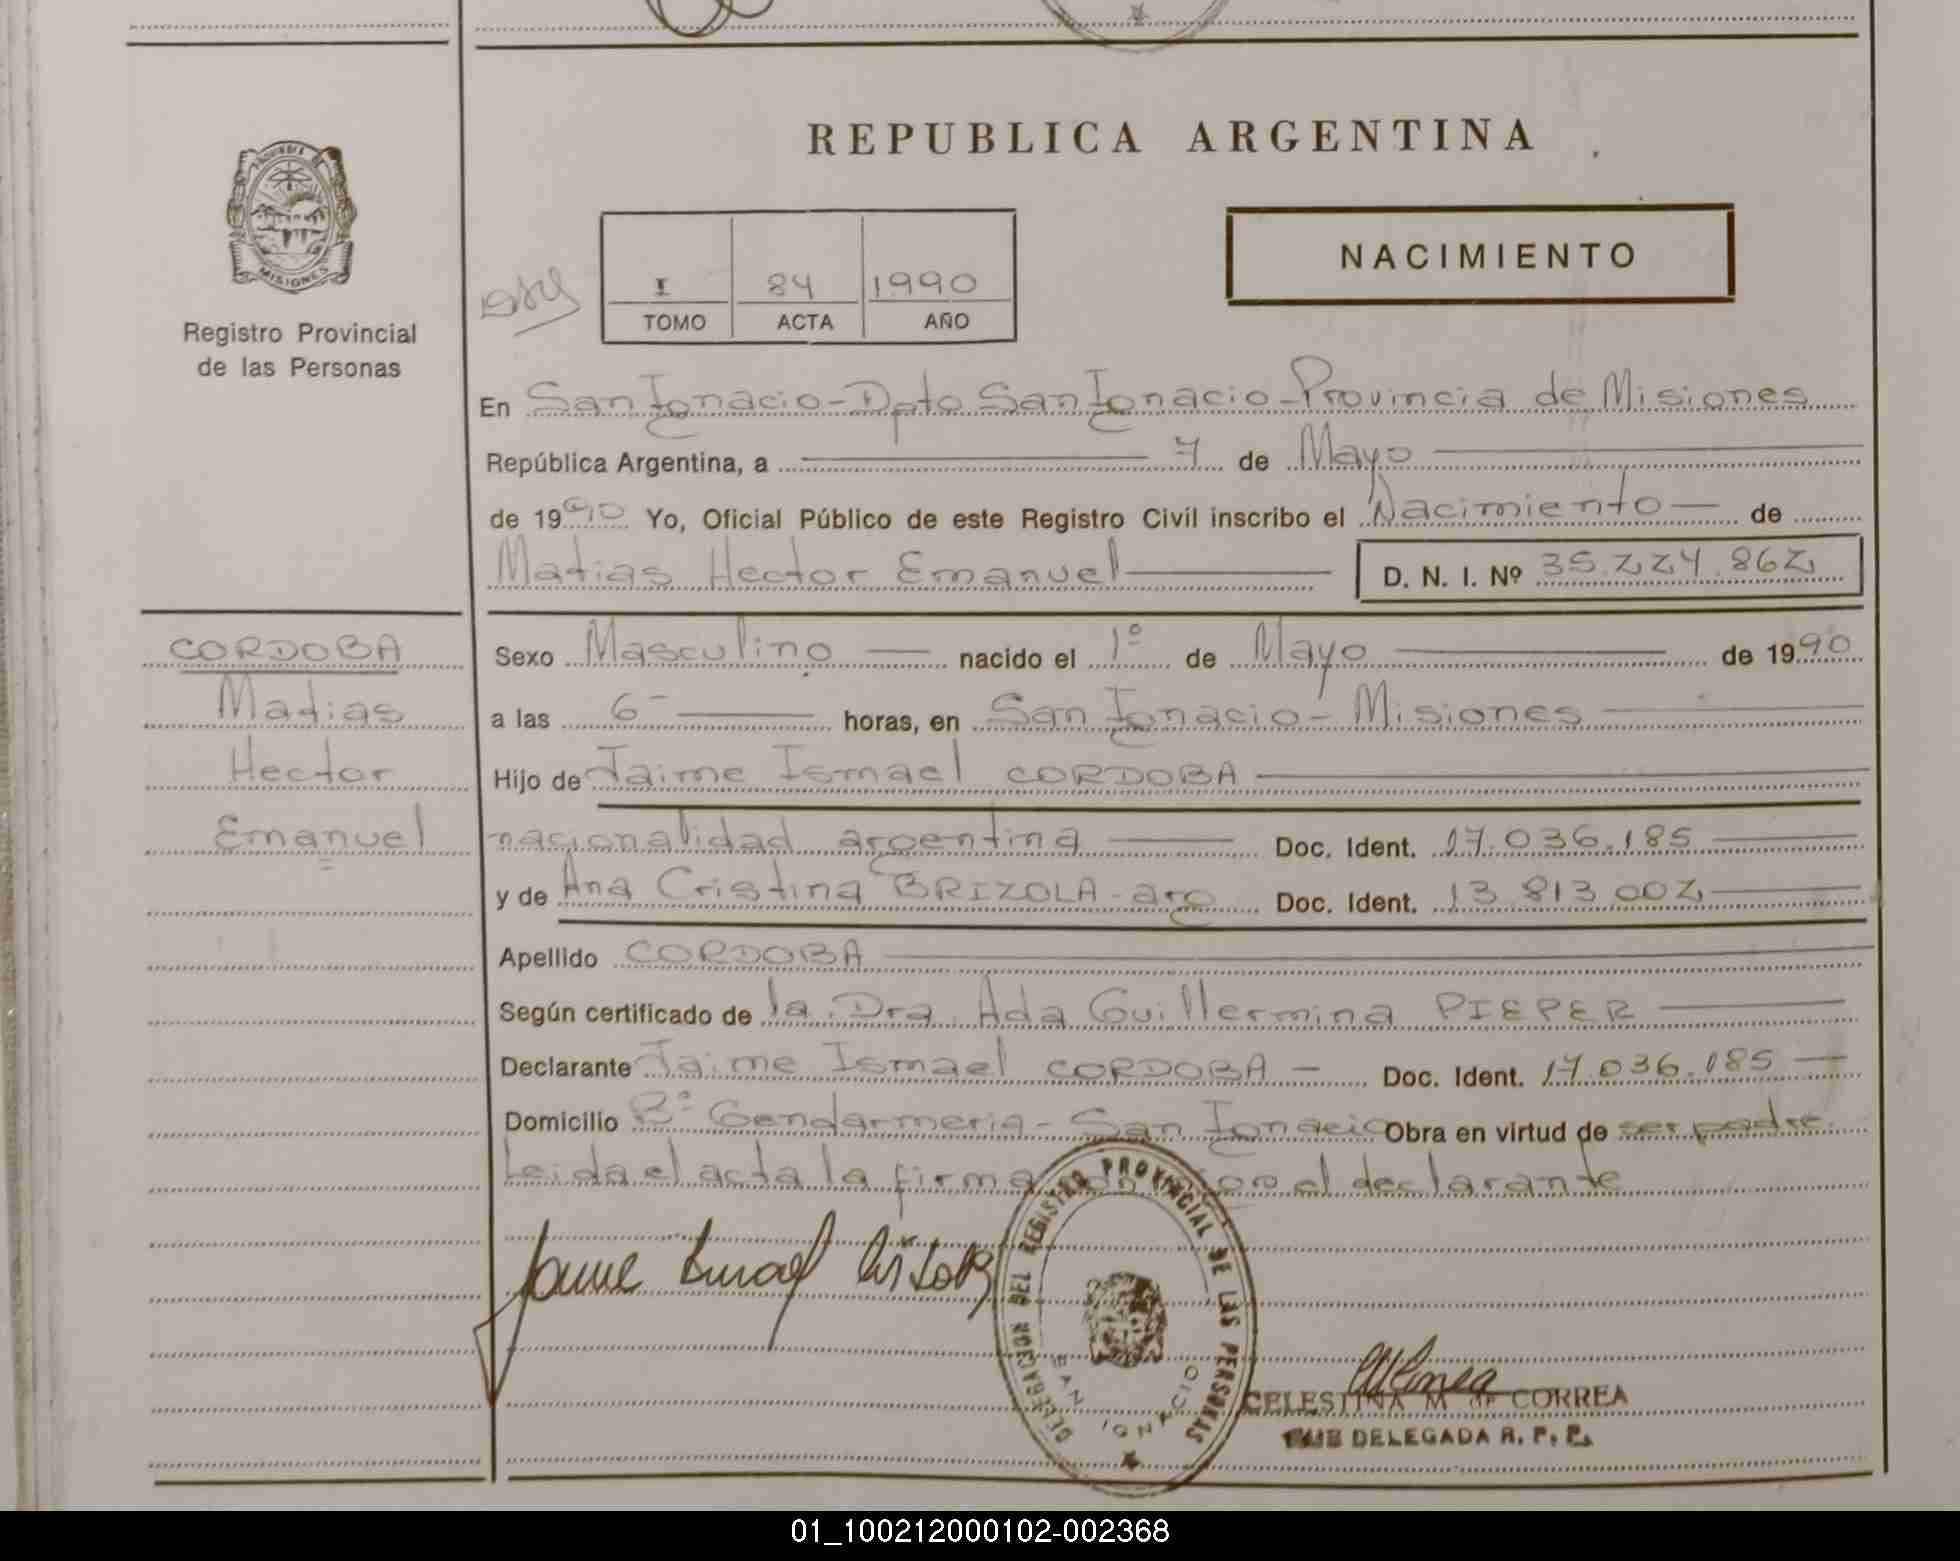 REPUBLICA ARGENTINA
MISIONES
Registro Provincial
de las Personas
NACIMIENTO
I 84 1990
TOMO ACTA AÑO
En San Ignacio-Dpto San Ignacio-Provincia de Misiones
República Argentina, a 7 de Mayo
de 1990 Yo, Oficial Público de este Registro Civil inscribo el Nacimiento - de
Matias Hector Emanuel D. N. I. Nº 35.224.862
CORDOBA
Matias
Hector
Emanuel
Sexo Masculino nacido el 1º de Mayo de 1990
a las 6 horas, en San Ignacio - Misiones
Hijo de Jaime Ismael CORDOBA
nacionalidad argentina Doc. Ident. 17.036.185
y de Ana Cristina BRIZOLA - arg Doc. Ident. 13.813.002
Apellido CORDOBA
Según certificado de la Dra. Ada Guillermina PIEPER
Declarante Jaime Ismael CORDOBA - Doc. Ident. 17.036.185
Domicilio Bº Gendarmeria - San Ignacio Obra en virtud de ser padre.
Leida el acta la firma el declarante
DELEGACION DEL REGISTRO PROVINCIAL DE LAS PERSONAS
SAN IGNACIO
CELESTINA M de CORREA
SUB DELEGADA R. P. P.
01_100212000102-002368